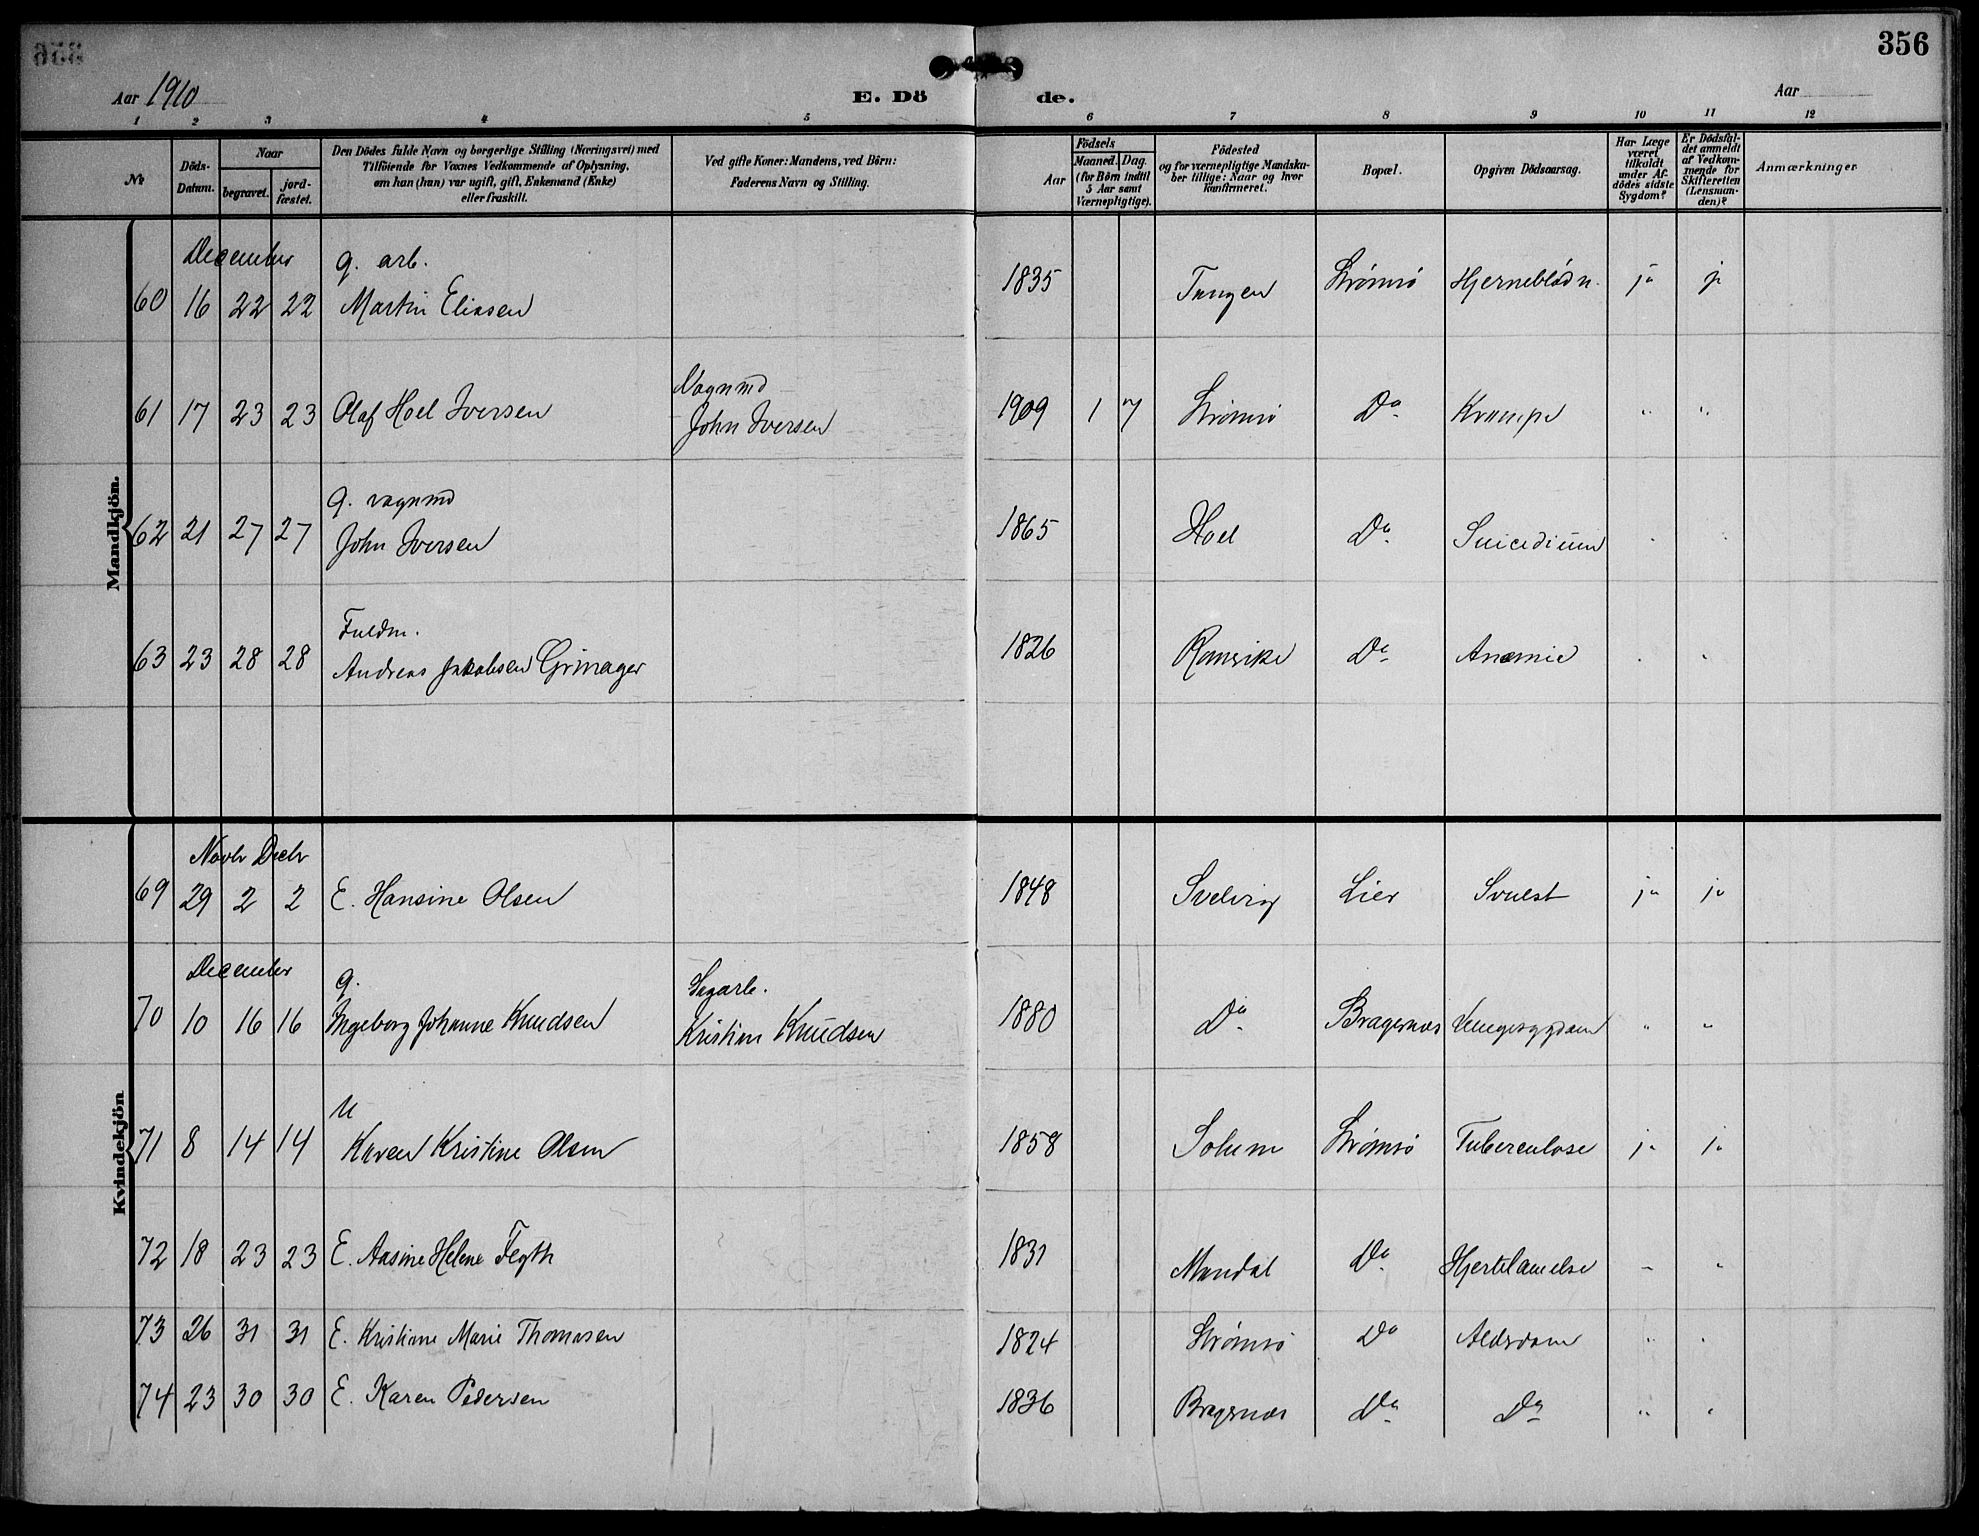 356
Aar 1910
E. Dö de.
Aar
1 2 3 4 5 6 7 8 9 10 11 12
№
Döds-Datum.
Naar
begravet.
jord-fæstet.
Den Dödes fulde Navn og borgerlige Stilling (Næringsvei) med
Tilföiende for Voxnes Vedkommende af Oplysning,
om han (hun) var ugift, gift, Enkemand (Enke)
eller fraskilt.
Ved gifte Koner: Mandens, ved Börn:
Faderens Navn og Stilling.
Födsels
Aar
Maaned. Dag.
(for Börn indtil
5 Aar samt
Værnepligtige).
Födested
og for værnepligtige Mandska-
ber tillige: Naar og hvor
konfirmeret.
Bopæl.
Opgiven Dödsaarsag.
Har Læge
været
tilkaldt
under Af-
dödes sidste
Sygdom?
Er Dödsfal-
det anmeldt
af Vedkom-
mende for
Skifteretten
(Lensman-
den)?
Anmærkninger
Mandkjön.
December g. arb.
60 16 22 22 Martin Eliasen 1835 Tangen Strømsø Hjerneblödn. ja ja
Vognmd
61 17 23 23 Olaf Hoel Iversen John Iversen 1909 1 7 Strømsø Do Krampe " "
g. vognmd
62 21 27 27 John Iversen 1865 Hoel Do Suicidium " "
Fuldm.
63 23 28 28 Andreas Jakobsen Grinager 1826 Romerike Do Anæmie " "
Kvindekjön
Novbr Decbr
69 29 2 2 E. Hansine Olsen 1848 Svelvig Lier Svulst ja ja
December g.
70 10 16 16 Ingeborg Johanne Knudsen Kristian Knudsen 1880 Do Bragernæs Lungesygdom " "
U
71 8 14 14 Karen Kristine Olsen 1858 Solum Strømsø Tuberculose ja ja
72 18 23 23 E. Aasine Helene Flygth 1831 Mandal Do Hjertelamelse " "
73 26 31 31 E. Kristiane Marie Thomasen 1824 Strømsø Do Alderdom " "
74 23 30 30 E. Karen Pedersen 1836 Bragernæs Do Do " "